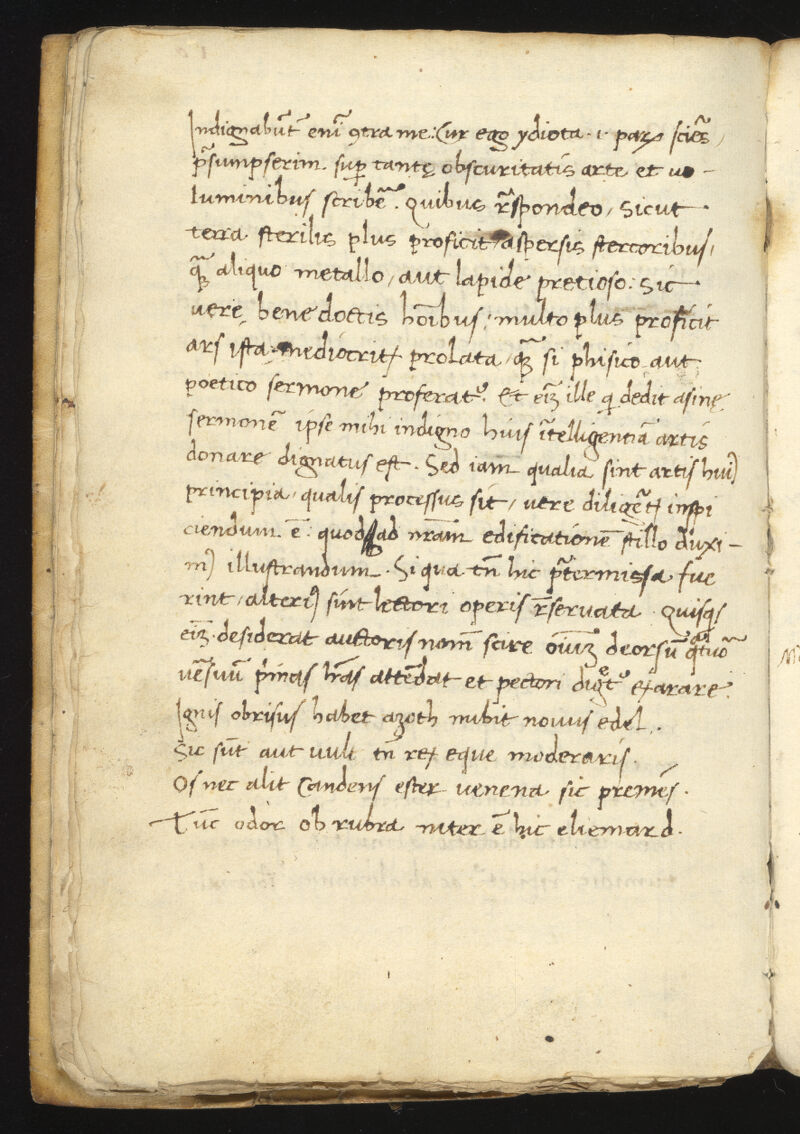 Indignabūt̄ enī ꝯtra me: Cur ego ydiota .i. parꝫ sciēs,
p̄sumpserim sup̱ tantę obscuritatis arte et uo-
luminibus scribē᷑. Quibus r̄spondeo, sicut
terra sterilis plus proficit aspersis stercoribus,
q̄ꝫ aliquo metallo, aut lapide pretioso: sic
uere, bene doctis hōibus, multo plus proficit
ars ista mediocrit̄ prolata, q̄ꝫ si phisico aut
poetico sermone proferat᷑. Et eīꝫ ille q̇ dedit asinę
sermonē ipse mihi indigno huius ītelligentiā artis
donare dignatus est. Sed iam qualia sint artis huiꝰ
principia, qualis processus sit, uere diligēt̄ inspi
ciendum ē: quod ad nr̄am edificationē stillo duxi-
mꝰ illustrandum. Si qua tn̄ hic p̄termissa fue
rint, alteriꝰ sūt lectori operis r̄seruata. Quisqꝫ
eīꝫ desiderat auctoris nom̄ scire deorsū
uēsuū p̄mas lr̄as attēdat et pectori exarare.
Ignis obrisus habet azoth nubit nouus edel.
Sic sūt aut uult tn̄ rex eque moderaris.
Os nec alit Candens ester uenena sic premēs.
Tūc odor ob rubra niter ē hic eliemard.